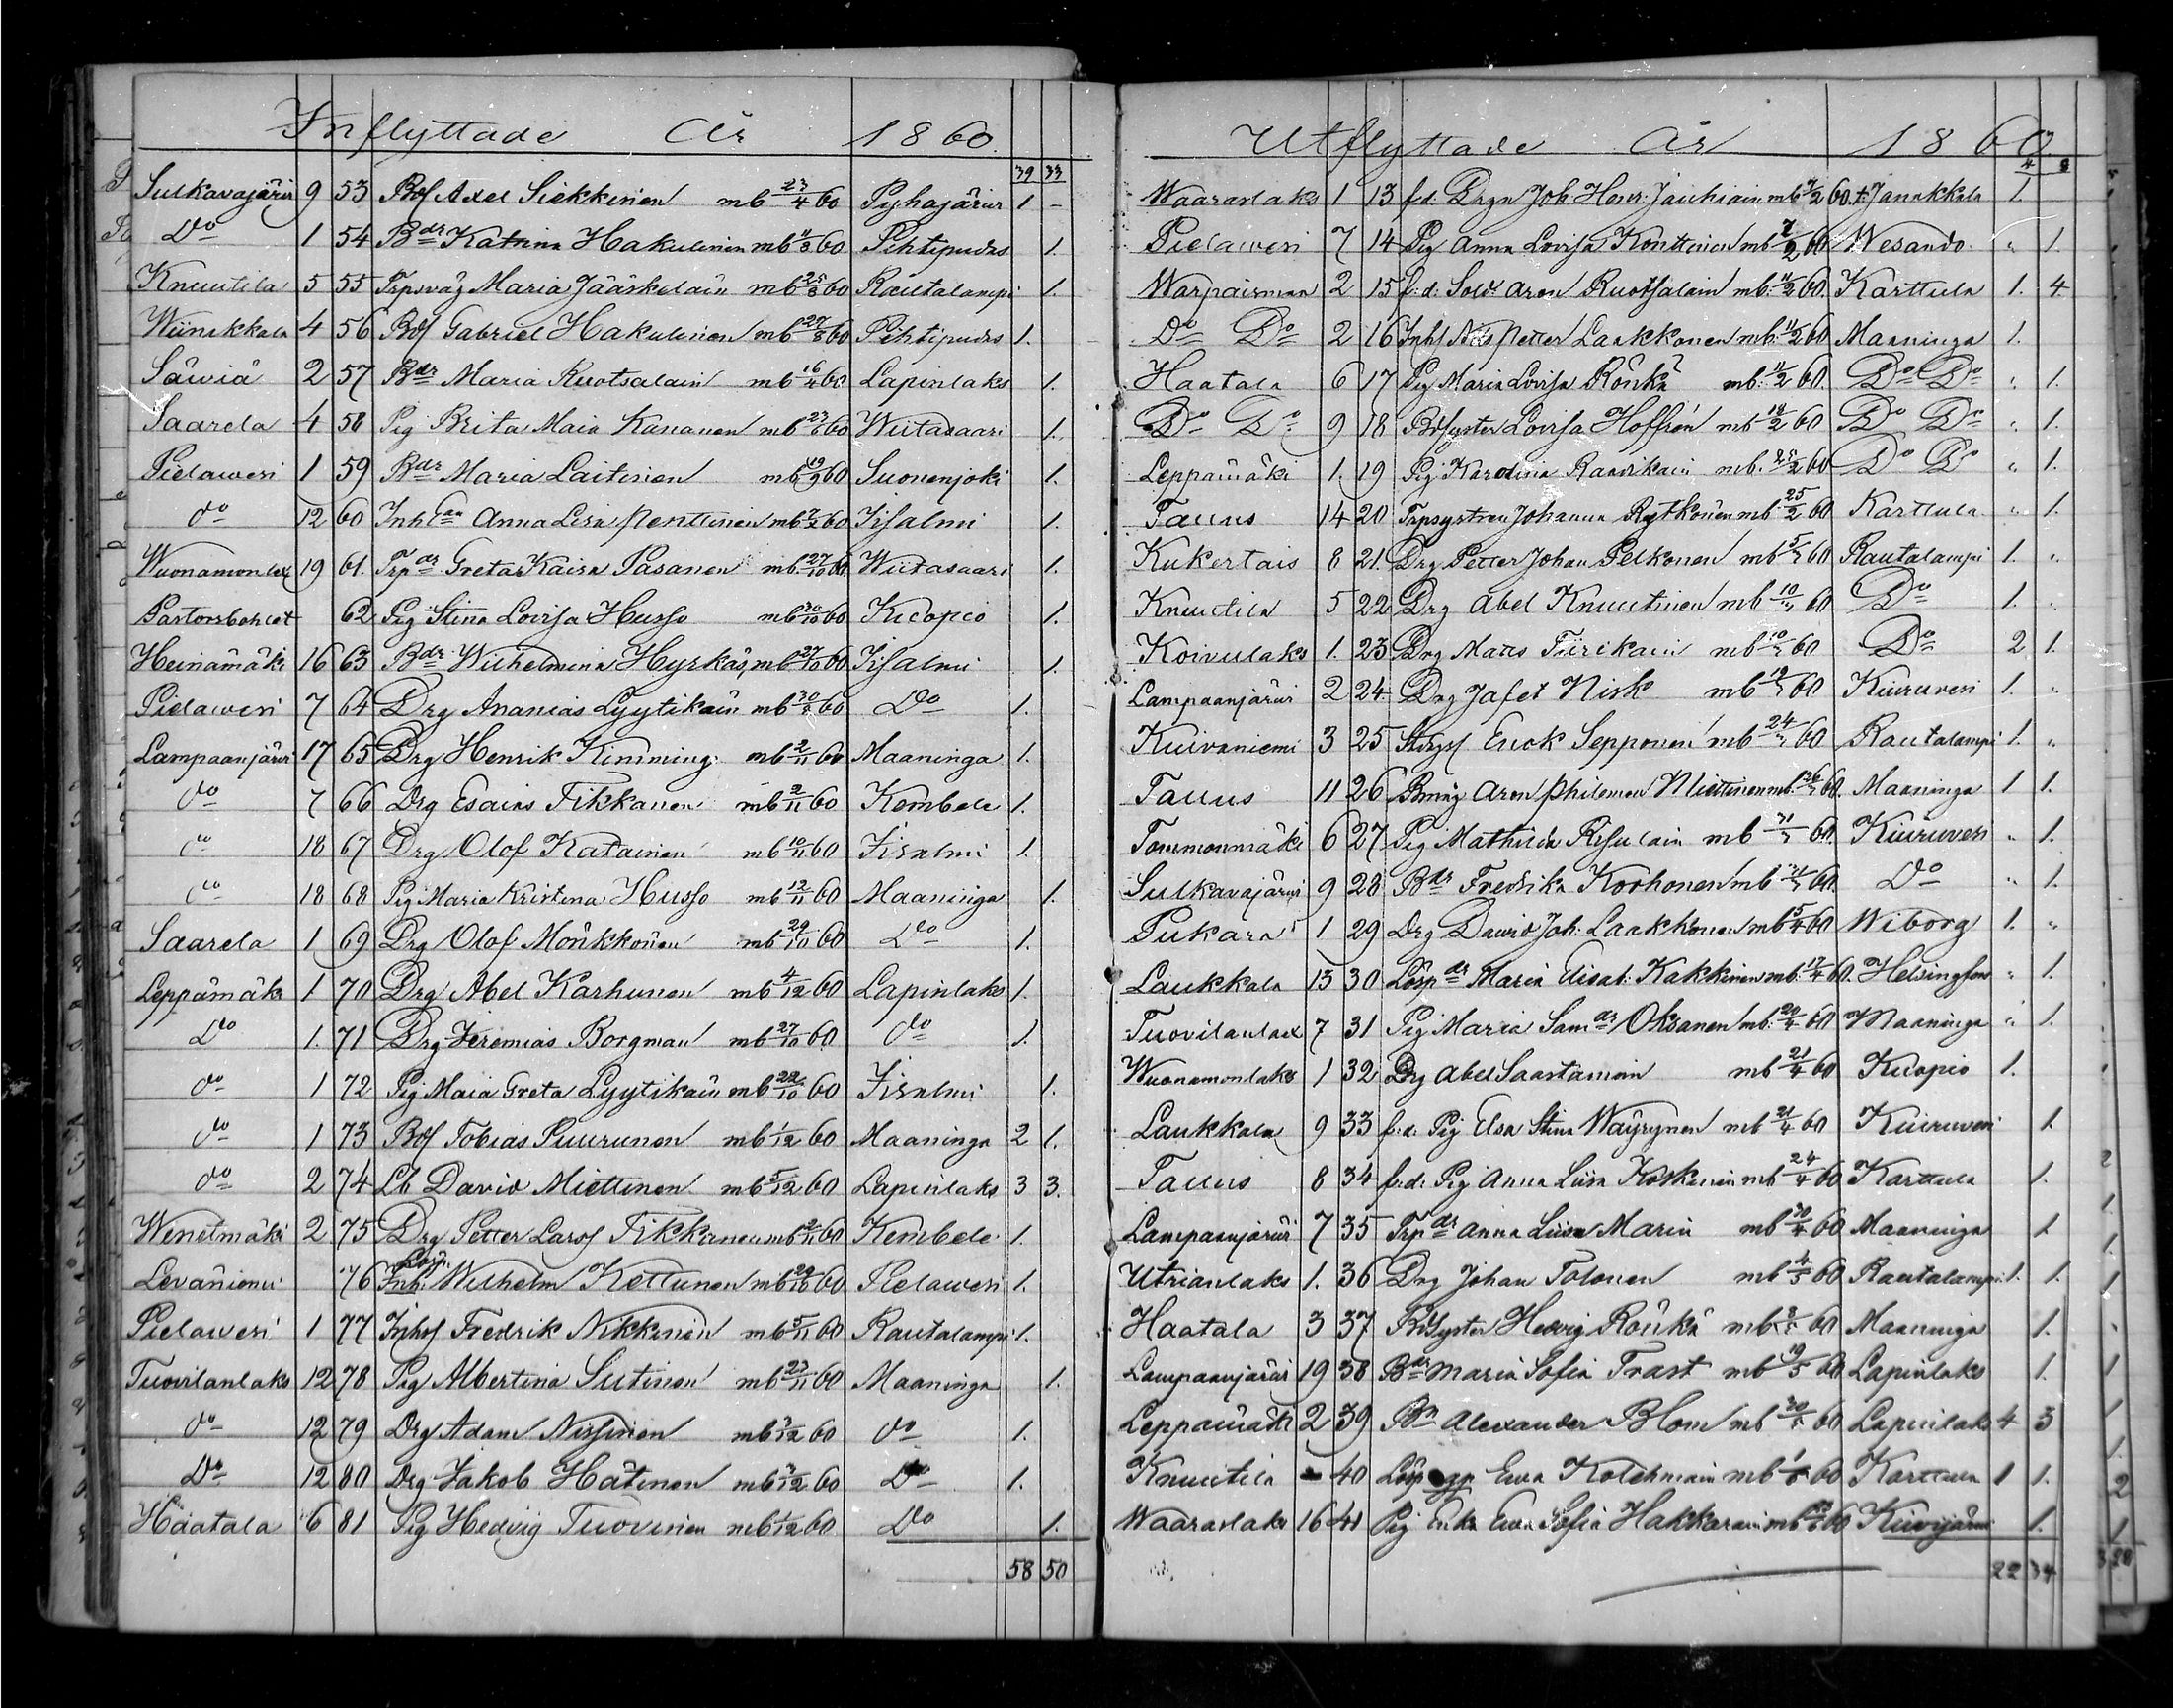 Inflyttade År 1860
39 33
Sulkavajärvi 9 53 Bdf Axel Siekkinen mb 23/4 60 Pyhajärvi 1 -
Do 1 54 Bdr Katrina Hakulinen mb 4/8 60 Pihtipudas 1.
Knuutila 5 55 Maria Jääskelain mb 25/8 60 Rautalampi 1.
Wiinikkala 4 56 Bdf Gabriel Hakulinen mb 27/8 60 Pihtipudas 1.
Säwiä 2 57 Bdr Maria Ruotsalain mb 16/4 60 Lapinlaks 1.
Saarela 4 58 Pig Brita Maia Kananen mb 23/6 60 Wiitasaari 1.
Pielawesi 1 59 Bdr Maria Laitinen mb 19/9 60 Suonenjoki 1.
do 12 60 Anna Lisa Penttinen mb 60 Iisalmi 1.
Wuonamonlax 19 61. Trp dr Greta Kaisa Pasanen mb 27/10 60 Wiitasaari 1.
Pastorsbohlet 62 Pig Stina Lovisa Husso mb 30/10 60 Kuopio 1.
Heinämäki 16 63 Bdr Wilhelmina Hyrkäs, mb 27/10 60 Iisalmi 1.
Pielawesi 7 64 Drg Ananias Lyytikäin mb 30/8 60 Do 1.
Lampaanjärvi 17 65 Drg Henrik Kimming mb 2/11 60 Maaninga 1.
do 7 66 Drg Esaias Tikkanen mb 2/11 60 Kembele 1.
do 18 67 Drg Olof Katainen mb 10/11 60 Iisalmi 1.
do 18 68 Pig Maria Kristina Husso mb 12/11 60 Maaninga 1.
Saarela 1 69 Drg Olof Mönkkönen mb 29/10 60 Do 1.
Leppämäki 1 70 Drg Abel Karhunen mb 4/12 60 Lapinlaks 1.
Do 1. 71 Drg Jeremias Borgman mb 27/10 60 do 1.
do 1 72 Pig Maia Greta Lyytikäin mb 22/10 60 Iisalmi 1.
do 1 73 Bdf Tobias Puurunen mb 1/12 60 Maaninga 2 1.
do 2 74 Lb David Miettinen mb 5/12 60 Lapinlaks 3 3.
Wenetmäki 2 75 Drg Petter Larsf Tikkanen mb 2/11 60 Kembele 1.
Leväniemi 76 Lösp. Inh. Wilhelm Kettunen mb 29/10 60 Pielawesi 1.
Pielawesi 1 77 Inhsf Fredrik Nikkinen mb 5/11 60 Rautalampi 1.
Tuovilanlaks 12 78 Pig Albertina Sutinen mb 23/11 60 Maaninga 1.
do 12 79 Drg Adam Nissinen mb 3/12 60 do 1.
Do 12 80 Drg Jakob Hätinen mb 3/12 60 Do 1.
Haatala 6 81 Pig Hedvig Tuovinen mb 1/12 60 Do 1.
58 50
Utflyttade År 1860
4 8
Waaraslaks 1 13 f.d. Drgn Joh. Henr: Jauhiain mb 7/2 60 Janakkala 1.
Pielawesi 7 14 Pig Anna Lovisa Konttinen mb 7/2 60 Wesando " 1.
Warpaismaa 2 15 f: d: Sold Aron Ruotsalain mb 11/2 60. Karttula 1. 4.
Do Do 2 16 Inhf Nils Petter Laakkonen mb. 11/2 60 Maaninga 1.
Haatala 6 17 Pig Maria Lovisa Rönkä mb. 11/2 60. Do Do " 1.
Do Do 9 18 Bdsyster Lovisa Hoffrén mb 18/2 60 Do Do " 1.
Leppämäki 1. 19 Pig Karolina Raasikain mb. 25/2 60 Do Do " 1.
Tauus 14 20 Trpsystren Johanna Rytkönen mb 25/2 60 Karttula " 1.
Kukertais 8 21. Drg Petter Johan Pelkonen mb 5/3 60 Rautalampi 1. "
Knuutila 5 22 Drg Abel Knuutinen mb 10/3 60 Do 1. "
Koivulaks 1. 23 Drg Matts Tiirikain mb 10/3 60 Do 2 1.
Lampaanjärvi 2 24. Drg Jafet Nisk mb 60 Kiuruvesi 1. "
Kuivaniemi 3 25 Erick Sepponen mb 24/3 60 Rautalampi 1. "
Tauus 11 26 Aron Philemon Miettinen mb. 26/3 60. Maaninga 1 1.
Tommonmäki 6 27 Pig Mathilda Risulain mb 31/3 60. Kiuruvesi " 1.
Sulkavajärvi 9 28 Bdr Fredrika Korhonen mb 60. Do " 1.
Pukara 1 29 Drg David Joh: Laakkonen mb 5/4 60 Wiborg 1. "
Laukkala 13 30 Lösp dr Maria Elisab: Kakkinen mb. 17/4 60. Helsingfors " 1.
Tuovilanlax 7 31 Pig Maria Sam dr Oksanen mb. 20/4 60 Maaninga " 1.
Wuonamonlaks 1 32 Drg Abel Saastamoin mb 21/4 60 Kuopio 1.
Laukkala 9 33 f.d. Pig Elsa Stina Wäyrynen mb 21/4 60 Kiuruvesi 1
Tauus 8 34 f.d. Pig Anna Liisa Koskinen mb 24/4 60 Karttula 1.
Lampaanjärvi 7 35 Trp dr Anna Liisa Marin mb 30/4 60 Maaninga 1
Utrianlaks 1. 36 Drg Johan Tolonen mb 4/5 60 Rautalampi 1. 1.
Haatala 3 37 Bdsyster Hedvig Rönkä mb 60 Maaninga 1.
Lampaanjärvi 19 38 Bdr Maria Sofia Trast mb 19/5 60 Lapinlaks 1.
Leppämäki 2 39 Bn Alexander Blom mb 60 Lapinlaks 4 3
Knuutila - 40 Lösp Ewa Kolehmain mb 60 Karttula 1 1.
Waaraslaks 16 41 Pig Ewa Sofia Hakkarain mb 60 Kivijärvi 1.
22 34